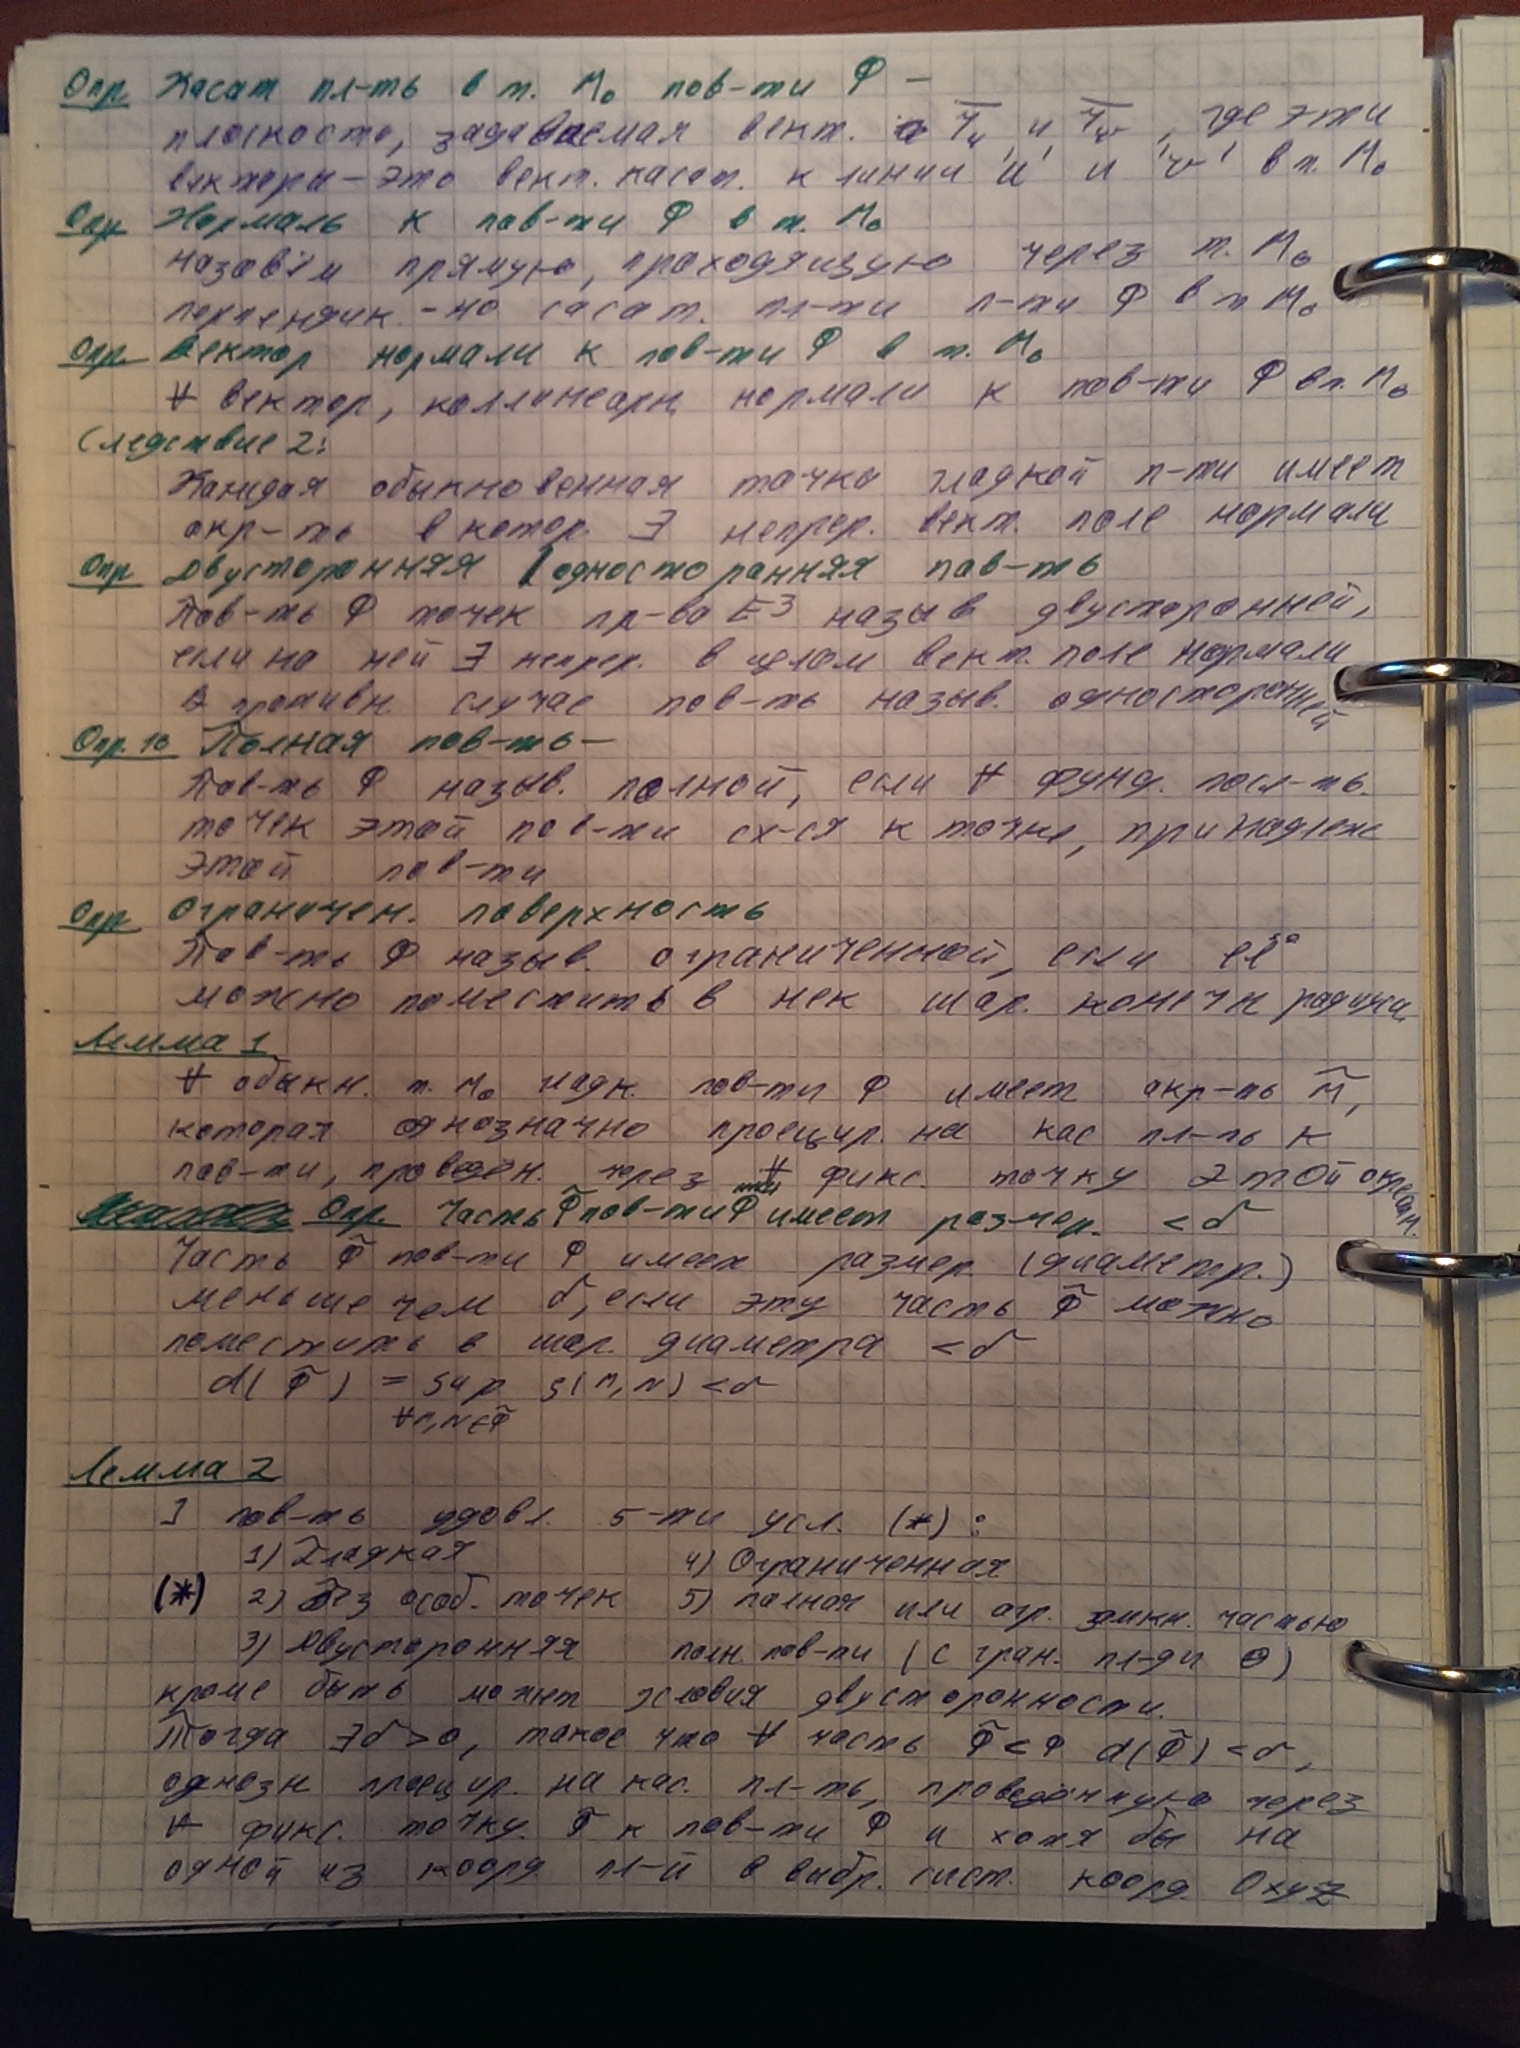 Опр Касат пл-ть в т. M₀ пов-ти Ф –
плоскость, задаваемая вект. r̄ᵤ и r̄ᵥ, где эти
векторы – это вект. касат. к линии 'u' и 'v' в т. M₀
Опр Нормаль к пов-ти Ф в т. M₀
назовём прямую, проходящую через т. M₀
перпендик.-но касат. пл-ти п-ти Ф в т M₀
Опр. Вектор нормали к пов-ти Ф в т. M₀
∀ вектор, коллинеарн нормали к пов-ти Ф в т. M₀
Следствие 2:
Каждая обыкновенная точка гладкой п-ти имеет
окр-ть в котор. ∃ непрер. вект. поле нормали
Опр Двусторонняя / односторонняя пов-ть
Пов-ть Ф точек пр-ва E³ назыв двусторонней,
если на ней ∃ непрер. в целом вект. поле нормали
В противн случае пов-ть назыв. односторонней
Опр. 10 Полная пов-ть –
Пов-ть Ф назыв. полной, если ∀ фунд. посл-ть.
точек этой пов-ти сх-ся к точке, принадлеж
этой пов-ти
Опр Ограничен. поверхность
Пов-ть Ф назыв. ограниченной, если её
можно поместить в нек шар. конечн радиуса.
Лемма 1
∀ обыкн. т. M₀ гладк. пов-ти Ф имеет окр-ть M̃,
которая однозначно проецир. на кас пл-ть к
пов-ти, проведен. через ∀ фикс. точку этой окрестн.
Опр. Часть Φ̃ пов-ти Ф имеет размер. < δ
Часть Φ̃ пов-ти Ф имеет размер (диаметр.)
меньше чем δ, если эту часть Φ̃ можно
поместить в шар. диаметра < δ
d( Φ̃ ) = sup ρ(M, N) < δ
∀M,N∈Φ̃
Лемма 2
] пов-ть удовл. 5-ти усл. (*) :
1) Гладкая 4) Ограниченная
(*) 2) Без особ. точек 5) полная или огр. замкн. частью
3) Двусторонняя полн. пов-ти (с гран. пл-ди 0)
кроме быть может условия двусторонности.
Тогда ∃δ > 0, такое что ∀ часть Φ̃ ⊂ Ф d(Φ̃) < δ,
однозн проецир. на кас. пл-ть, проведённую через
∀ фикс. точку. Φ̃ к пов-ти Ф и хотя бы на
одной из коорд пл-й в выбр. сист. коорд. Oxyz